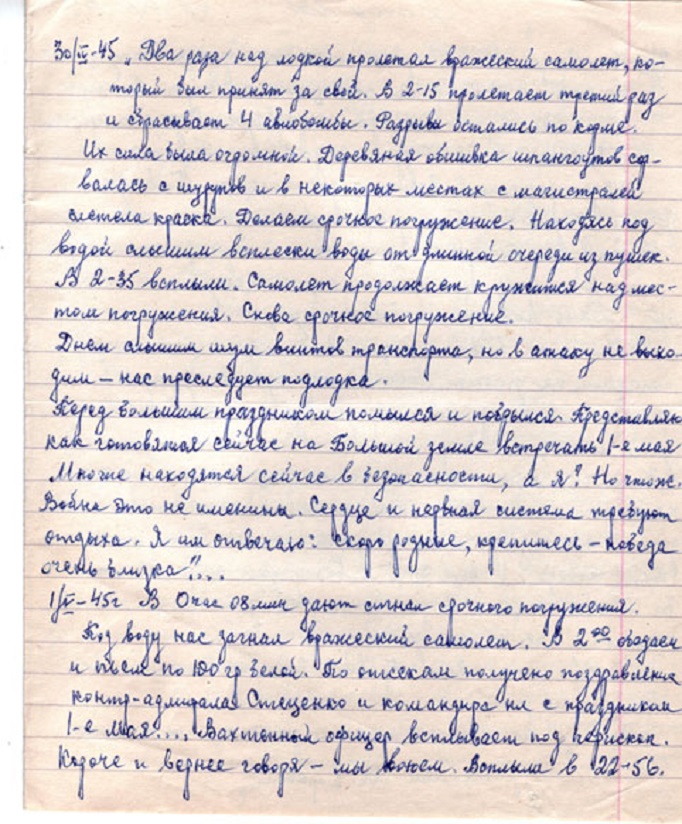 30/IV-45 „Два раза над лодкой пролетал вражеский самолет, ко-
торый был принят за свой. В 2-15 пролетает третий раз
и сбрасывает 4 авиобомбы. Разрывы остались по корме.
Их сила была огромной. Деревяная обшивка шпангоутов сор-
валась с шурупов и в некоторых местах с магистралей
слетела краска. Делаем срочное погружение. Находясь под
водой слышим всплески воды от длинной очереди из пушек.
В 2-35 всплыли. Самолет продолжает кружится над мес-
том погружения. Снова срочное погружение.
Днем слышим шум винтов транспорта, но в атаку не выхо-
дим — нас преследует подлодка.
Перед большим праздником помылся и побрился. Представляю
как готовятся сейчас на Большой земле встречать 1-е мая
Многие находятся сейчас в безопасности, а я? Но чтож.
Война это не именины. Сердце и нервная система требуют
отдыха. Я им отвечаю: скоро родные, крепитесь — победа
очень близка"...
1/V-45г В 0 час 08 мин дают сигнал срочного погружения.
Под воду нас загнал вражеский самолет. В 2 00 обедаем
и пьем по 100 гр белой. По отсекам получено поздравление
контр-адмирала Стеценко и командира пл с праздником
1-е Мая.... Вахтенный офицер всплывает под перископ.
Короче и вернее говоря — мы воюем. Всплыли в 22-56.